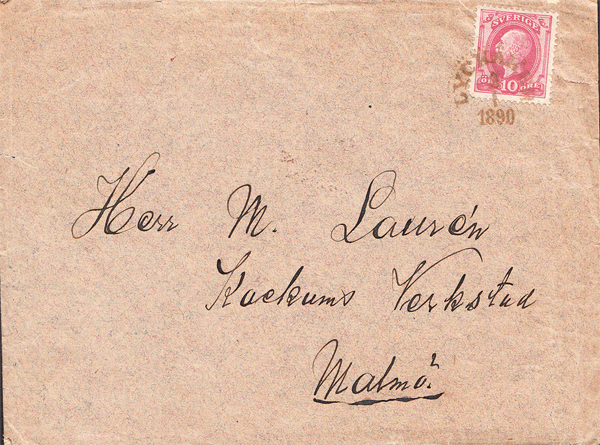 SVERIGE
10 ÖRE
1890
Herr M. Laurén
Kockums Verkstad
Malmö.